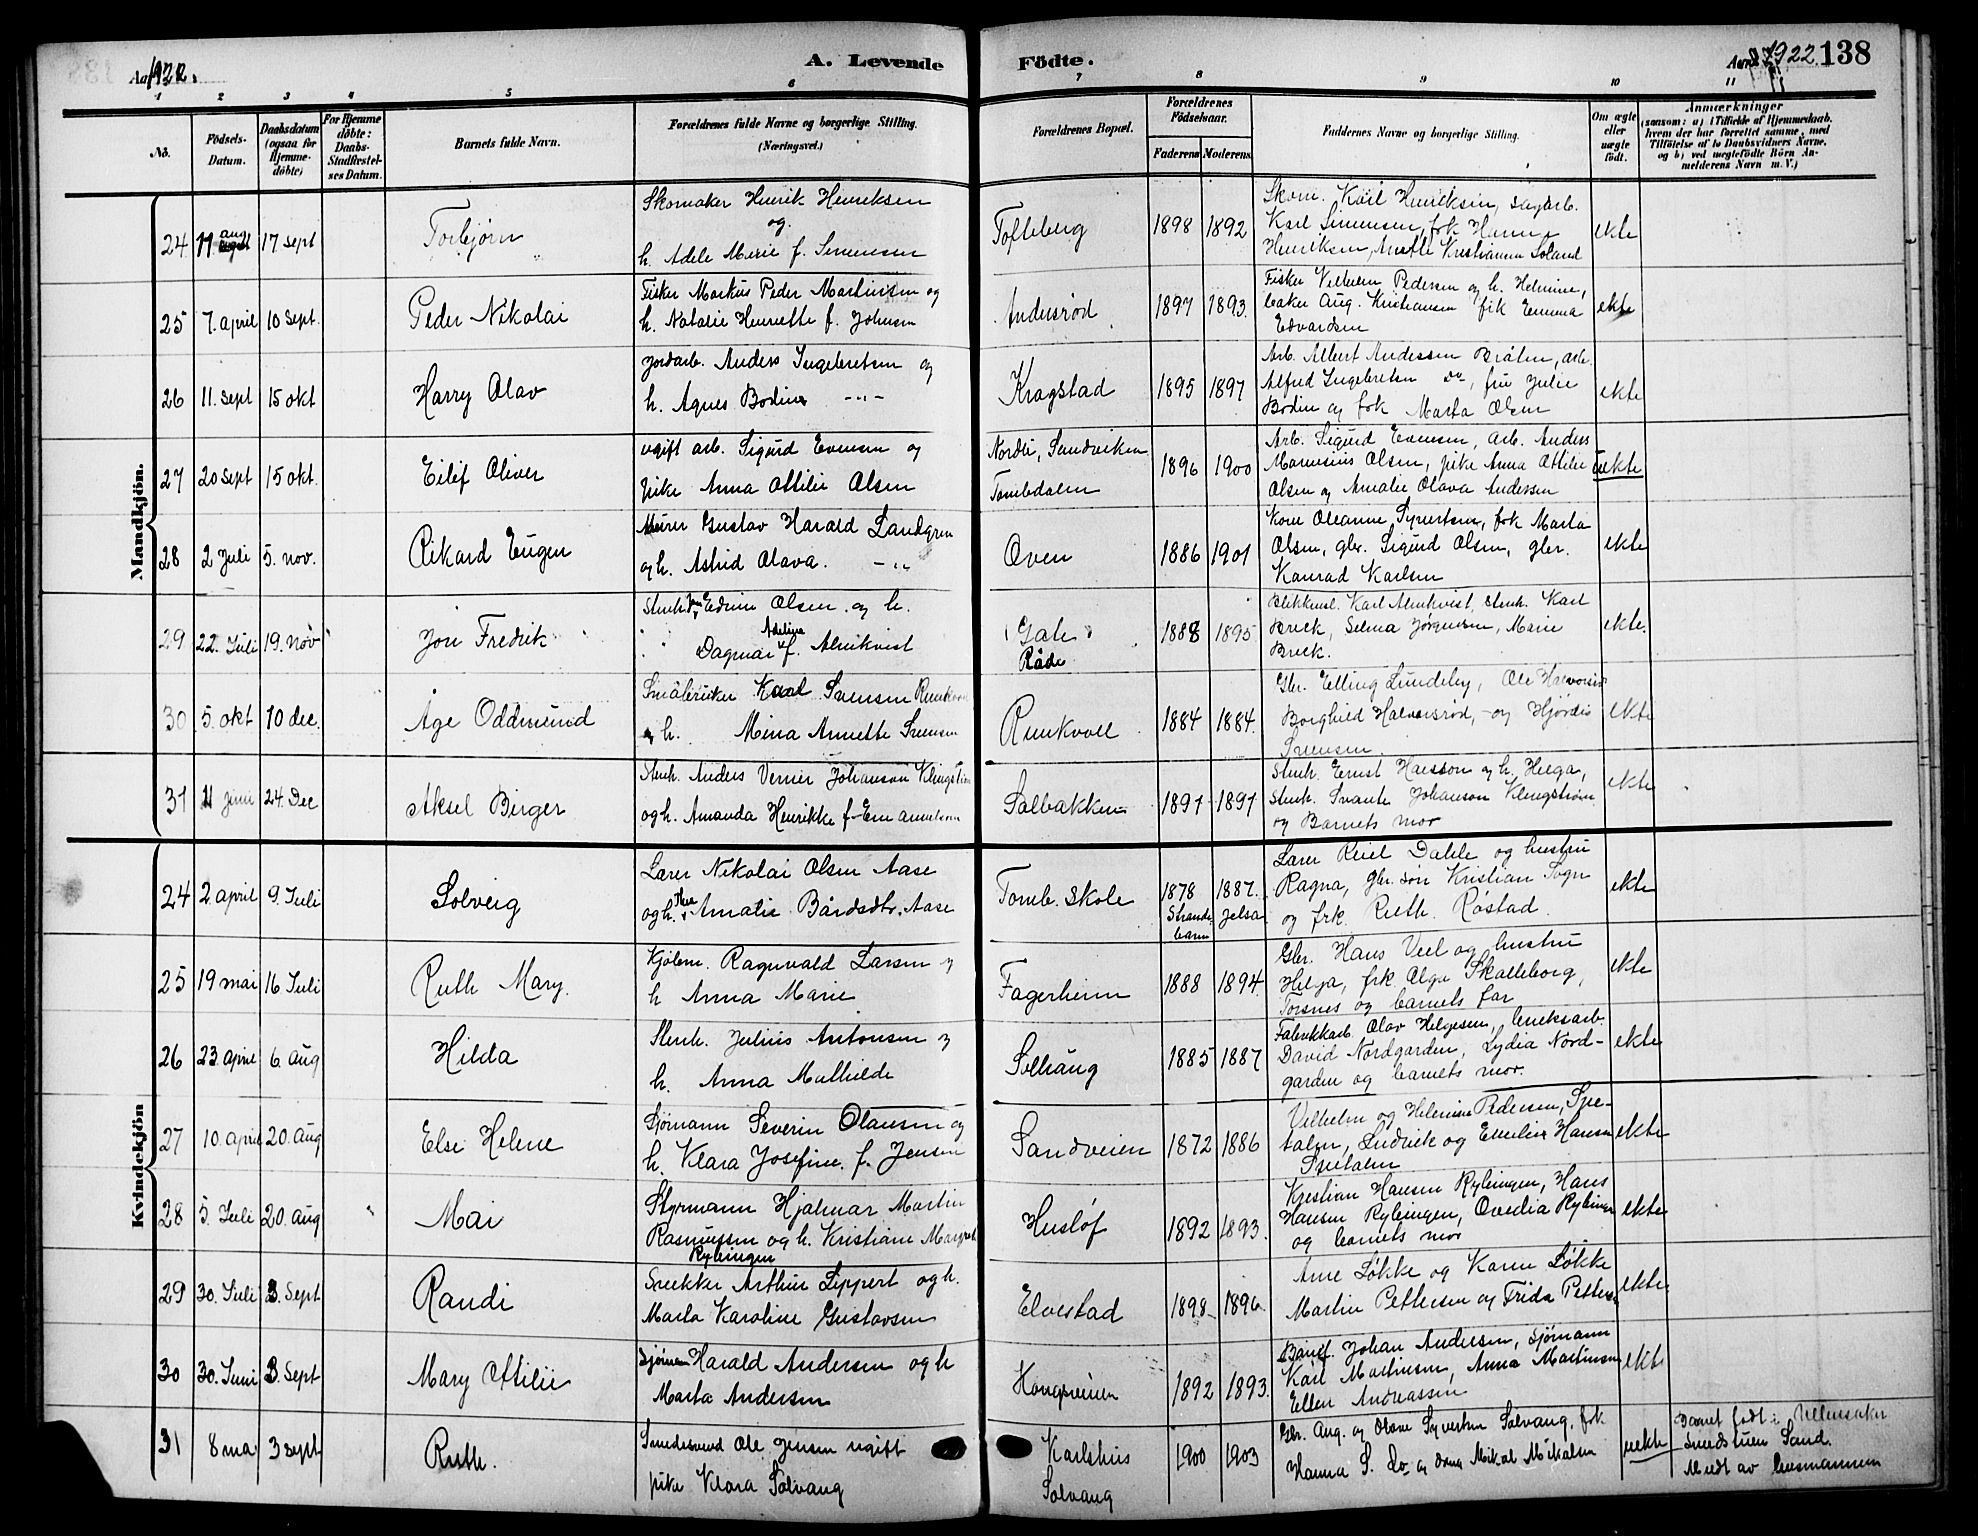 Aar 1922.
A. Levende
Födte.
Aar 1922
138
1 2 3 4 5 6 7 8 9 10 11
No.
Födsels-Datum.
Daabsdatum (ogsaa for Hjemme-döbte)
For Hjemmedöbte: Daabs-Stadfæstelses Datum.
Barnets fulde Navn.
Forældrenes fulde Navne og borgerlige Stilling.
(Næringsvei.)
Forældrenes Bopæl.
Forældrenes Födselsaar.
Faderens
Moderens
Faddernes Navne og borgerlige Stilling.
Om ægte eller uægte født.
Anmærkninger
(saasom: a) i Tilfælde af Hjemmedaab. hvem der har forrettet samme, med Tilföielse af to Daabsvidners Navne, og b) ved uægtefödte Börn Anmelderens Navn m. V.)
Mandkjön.
24 11 aug 17 sept Torbjørn
Skomaker Henrik Henriksen
og
h. Adele Marie f. Simensen
Tofteberg 1898 1892
Skom. Karl Henriksen, sagarb.
Karl Simensen, frk Hanna
Henriksen, Anette Kristiansen Soland
ekte
25 7. april 10 sept. Peder Nikolai
Fisker Markus Peder Martinsen og
h. Natalie Henriette f. Johnsen
Andersrød 1897 1893.
Fisker Vilhelm Pedersen og h. Helmine,
baker Aug. Kristiansen frk Emma
Edvardsen
ekte
26 11. sept 15 okt Harry Olav
Jordarb. Anders Ingebretsen og
h. Agnes Bodine -"-
Kragstad 1895 1897
Arb. Albert Andersen Bråten, arb.
Alfred Ingebretsen do, fru Julie
Bodin og frk Marta Olsen
ekte
27 20 sept 15 okt. Eilif Oliver
ugift arb. Sigurd Evensen og
pike Anna Ottilie Olsen
Nordli, Sandviken
Tombdalen
1896 1900
Arb. Sigurd Evensen, arb. Anders
Marensius Olsen, pike Anna Ottilie
Olsen og Amalie Olava Andersen
uekte
28 2 Juli 5. nov. Rikard Eugen
Murer Gustav Harald Landgren
og h. Astrid Olava. -"-
Oven 1886 1901
Kone Oleanne Syvertsen, frk Marta
Olsen, gbr. Sigurd Olsen, gbr.
Konrad Karlsen
ekte
29 22. Juli 19. nov Jon Fredrik
Stenh. Edvin Olsen og h.
Dagmar Adeline f. Almkvist
Råde
1888 1895
Blikkensl. Karl Almkvist, stenh. Karl
Breck, Selma Jørgensen, Marie
Breck.
ekte.
30 5. okt 10 dec. Åge Oddmund
Småbruker Karl Svensen
og h. Mina Annette Svensen
1884 1884.
Gbr. Elling Lundeby, Ole Halvorsen
Borghild Halvorsrød, og Hjørdis
Svensen.
ekte
31 11 juni 24. Dec Aksel Birger
Stenh. Anders Verner Johanson Klingstrøm
og h. Amanda Henrikke f. Emanuelsen
Solbakken 1891 1891
Stenh. Ernst Hansson og h. Helga,
Stenh. Svante Johanson Klingstrøm
og Barnets mor
ekte
Kvindekjön
24 2. april 9. Juli Solveig
Lærer Nikolai Olsen Aase
og h. Thea Amalie Bårdsdtr. Aase
Tomb. skole
1878 1887.
Strandebarm Jelsa
Lærer Reiel Dahle og hustru
Ragna, gbr. søn Kristian Sogn
og frk. Ruth Røstad.
ekte
25 19 mai 16 Juli Ruth Mary.
Kjølem. Ragnvald Larsen og
h Anna Marie
Fagerheim 1888 1894.
Gbr. Hans Veel og hustru
Helga, frk Olga Skalleborg,
Torsnes og barnets far
ekte
26 23. april 6. aug Hilda
Stenh. Julius Antonsen og
h. Anna Mathilde
Solhaug 1885 1887
Fabrikkarb. Olav Helgesen, bruksarb.
David Nordgarden, Lydia Nord-
garden og barnets mor.
ekte
27 10. april 20. aug Else Helene
Sjømann Severin Olausen og
h. Klara Josefine. f. Jensen
Sandveien 1872 1886
Vilhelm og Helmine Pedersen, Spe-
talen, Ludvik og Emilie Hansen
Spetalen
ekte
28 5. Juli 20. aug Mai
Styrmann Hjalmar Martin
Rasmussen og h. Kristiane Margrethe
Rybingen
Husløf 1892 1893.
Kristian Hansen Rybingen, Hans
Hansen Rybingen, Ovedia Rybingen
og barnets mor
ekte
29 30. Juli 3. Sept Randi
Snekker Arthur Lippert og h.
Marta Karoline Gustavsen
Elvestad 1898 1896
Arne Løkke og Karen Løkke
Martin Pettersen og Frida Pettersen
ekte
30 30. Juni 3. Sept Mary Ottilie
Sjømann Harald Andersen og h
Marta Andersen
Haugsveien 1892 1893.
Banef. Johan Andersen, Sjømann
Karl Martinsen, Anna Martinsen
Ellen Andreassen
ekte
31 8 mai 3 sept Ruth.
Smedesvend Ole Jensen ugift
pike Klara Solvang
Karlshus
Solvang
1900 1903
Gbr. Aug. og Olava Syvertsen Solvang, frk
Hanna S. do og Mikal Mikalsen
uekte
Barnet født i Ullensaker
Sand.
Meldt av